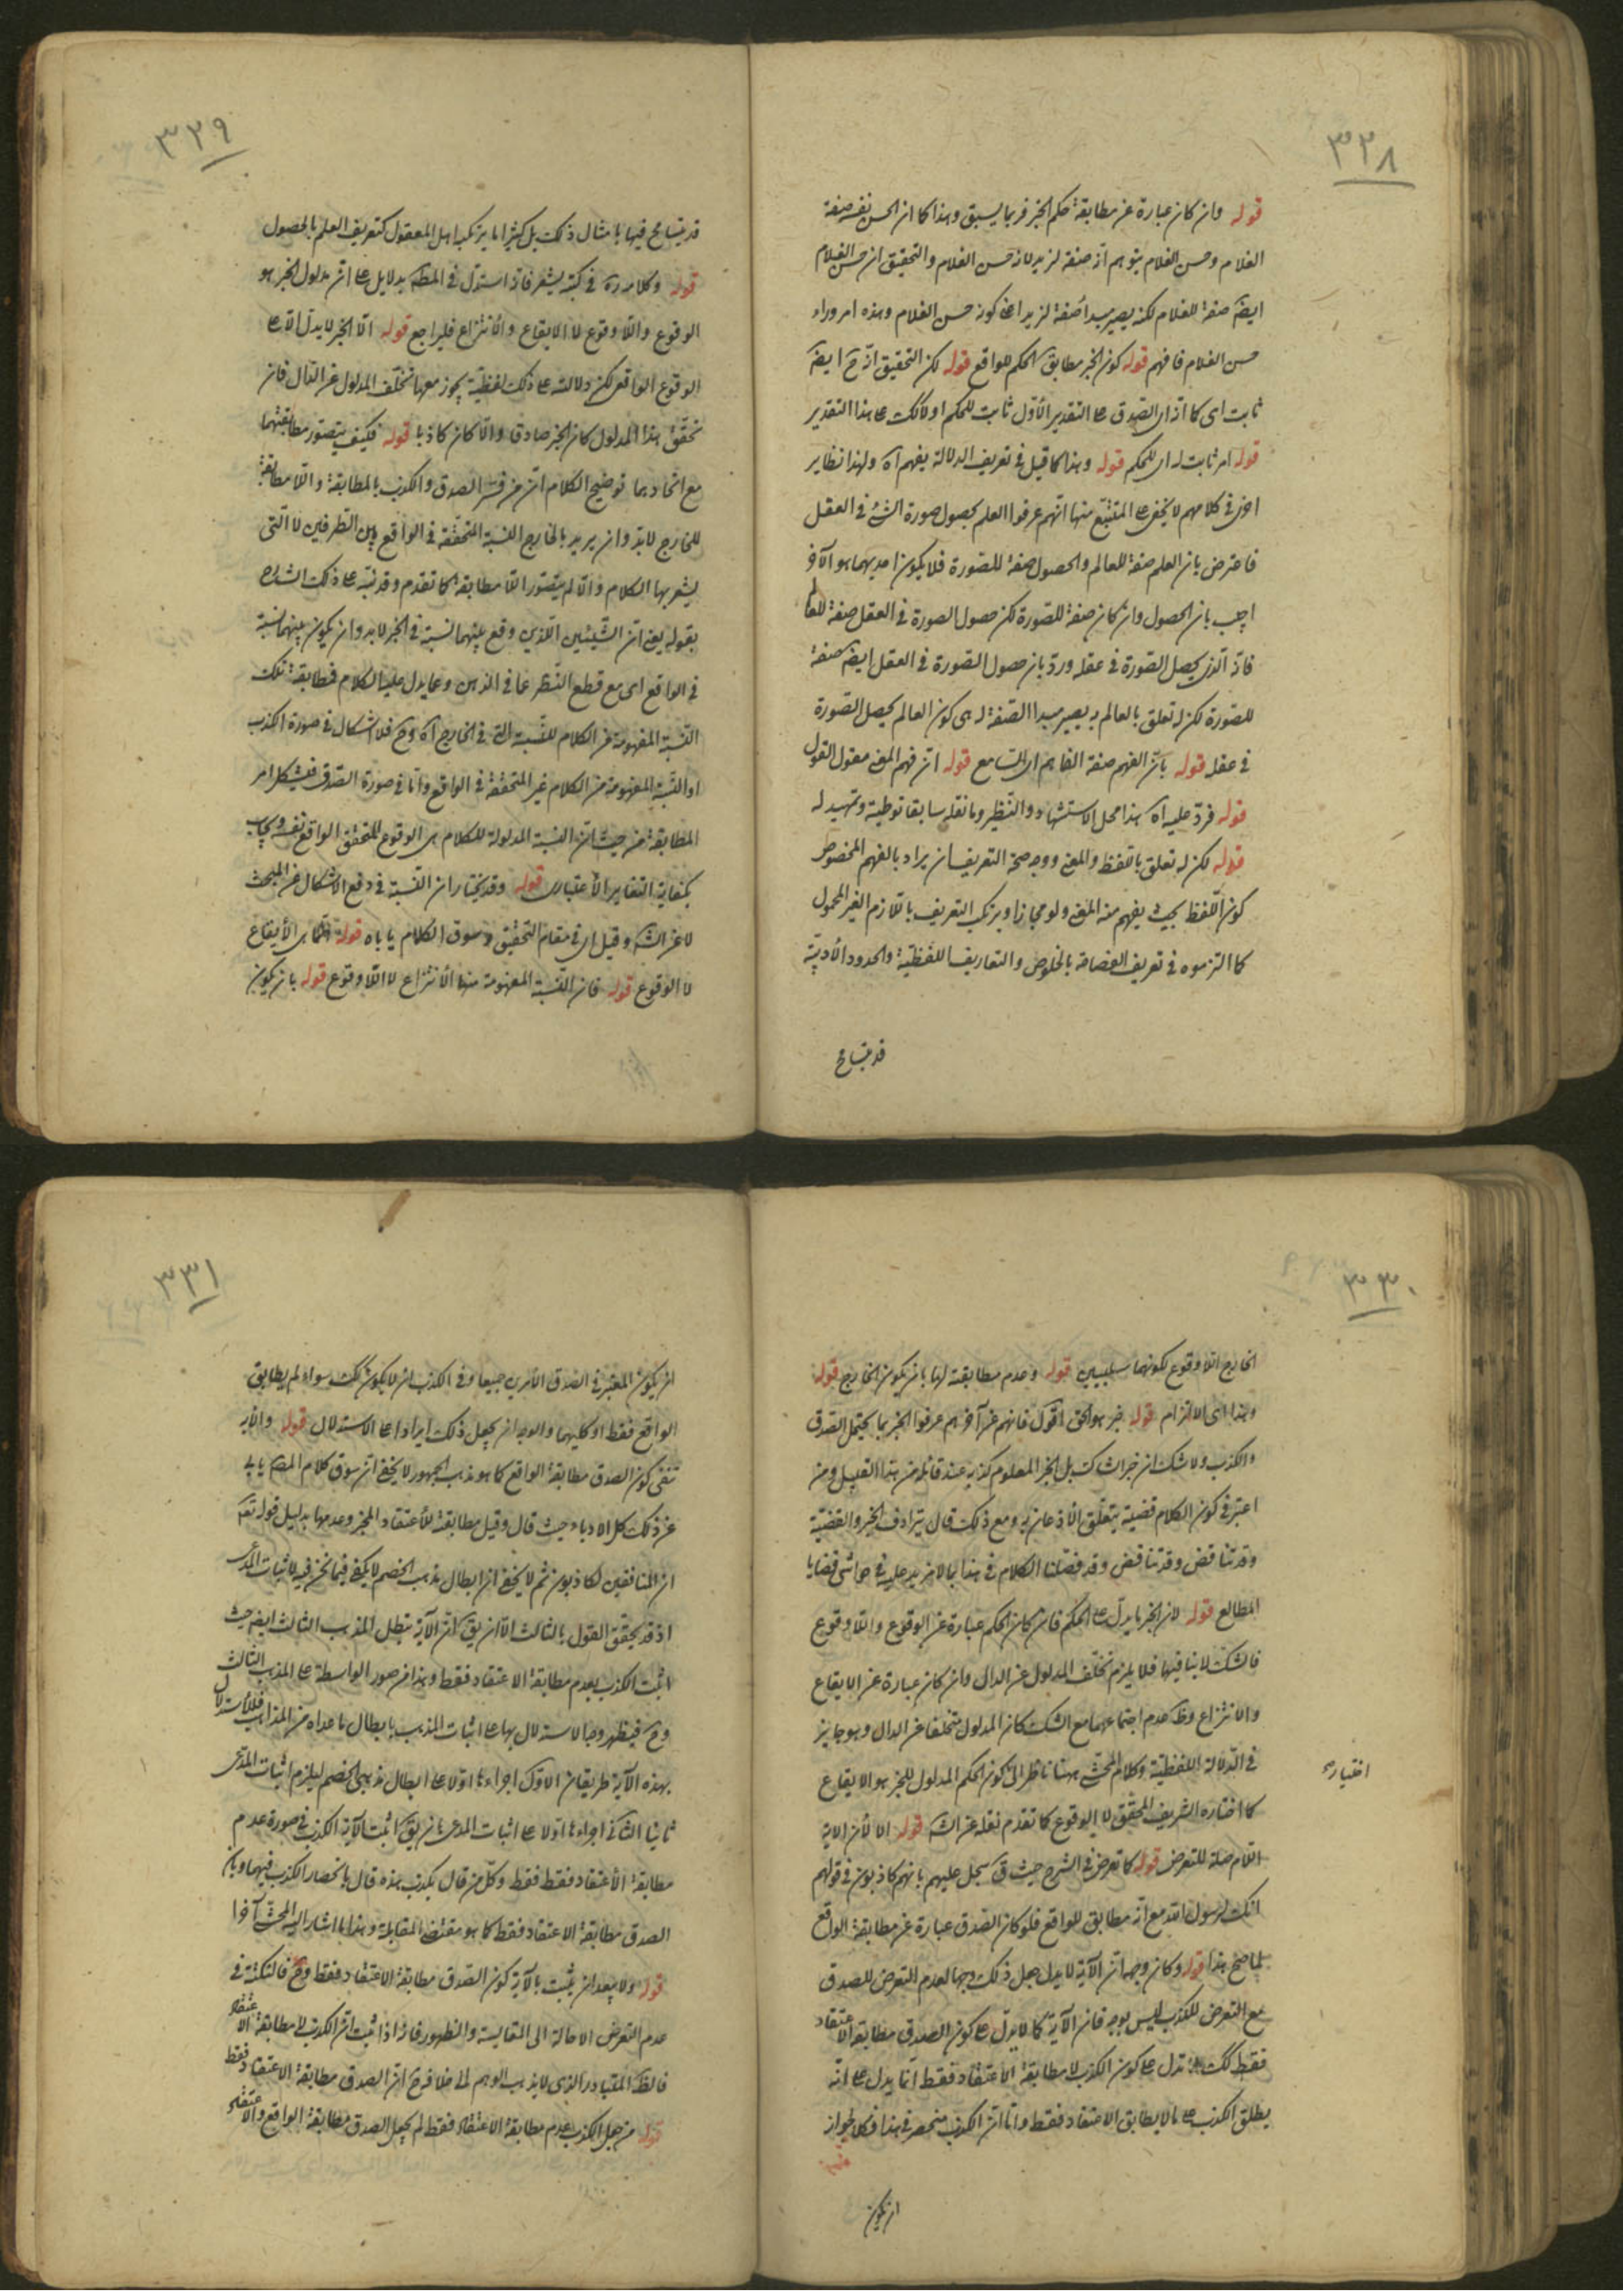 ٣٢٨
قوله وان كان عبارة عن مطابقة حكم الخبر فربما يسبق وهذا كما ان الحسن نفسه صفة
الغلام وحسن الغلام يتوهم انه صفة لزيد لانه حسن الغلام والتحقيق ان حسن الغلام
ايضا صفة للغلام لكنه يصير مبدأ صفة لزيد اعنى كونه حسن الغلام وهذه امر وراء
حسن الغلام فافهم قوله كون الخبر مطابق الحكم للواقع قوله لكن التحقيق انه ح ايضا
ثابت اى كما انه اى الصدق على التقدير الأول ثابت للحكم اولا كك على هذا التقدير
قوله امر ثابت له اى للحكم قوله وهذا كما قيل فى تعريف الدلالة بفهم آه ولهذا نظاير
اخر فى كلامهم لا يخفى على المتتبع منها انهم عرفوا العلم بحصول صورة الشئ فى العقل
فاعترض بان العلم صفة للعالم والحصول صفة للصورة فلا يكون احديهما هو الآخر
اجيب بان الحصول وان كان صفة للصورة لكن حصول الصورة فى العقل صفة للعالم
فانه الذى يحصل الصورة فى عقله ورد بان حصول الصورة فى العقل ايضا صفة
للصورة لكن له تعلق بالعالم به يصير مبدا الصفة له هى كون العالم يحصل الصورة
فى عقله قوله بان الفهم صفة الفاهم اى السامع قوله ان فهم المعنى مقول القول
قوله فرد عليه آه هذا محل الاستشهاد والتنظير وما نقله سابقا توطية وتمهيد له
قوله لكن له تعلق باللفظ والمعنى ووجه صحة التعريف ان يراد بالفهم المخصوص
كون اللفظ بحيث يفهم منه المعنى ولو مجازا ويرتكب التعريف باللازم الغير المحمول
كما التزموه فى تعريف الفصاحة بالخلوص والتعاريف اللفظية والحدود الأدبية
قد يتسامح
٣٢٩
قد يتسامح فيها بامثال ذلك بل كثيرا ما يرتكبه اهل المعقول كتعريف العلم بالحصول
قوله وكلامه ره فى كتبه يشعر فانه استدل فى المطه بدلايل على ان مدلول الخبر هو
الوقوع واللا وقوع لا الايقاع والأنتزاع فليراجع قوله الا الخبر لا يدل الا على
الوقوع الواقعى لكن دلالته على ذلك لفظية يجوز معها تخلف المدلول عن الدال فان
تحقق هذا المدلول كان الخبر صادقا والا كان كاذبا قوله فكيف يتصور مطابقتهما
مع اتحادهما توضيح الكلام ان من فسر الصدق والكذب بالمطابقة واللا مطابقة
للخارج لا بد وان يريد بالخارج النسبة المتحققة فى الواقع بين الطرفين لا التى
يشعر بها الكلام والا لم يتصور اللا مطابقة كما تقدم وقد نبه على ذلك الشارح
بقوله يعنى ان الشيئين اللذين وقع بينهما نسبة فى الخبر لا بد وان يكون بينهما نسبة
فى الواقع اى مع قطع النظر عما فى الذهن وعما يدل عليه الكلام فمطابقة تلك
النسبة المفهومة من الكلام للنسبة التى فى الخارج آه وح فلا اشكال فى صورة الكذب
او النسبة المفهومة من الكلام غير المتحققة فى الواقع واما فى صورة الصدق فيشكل امر
المطابقة من حيث ان النسبة المدلولة للكلام هى الوقوع المتحقق الواقع نفسه ويجاب
بكفاية التغاير الأعتبارى قوله وقد يختار ان النسبة فى دفع الاشكال عن المبحث
لا عن الشه وقيل اى فى مقام التحقيق وسوق الكلام ياباه قوله انهما اى الأيقاع
لا الوقوع قوله فان النسبة المفهومة منها الأنتزاع لا اللا وقوع قوله بان يكون
٣٣٠
الخارج اللا وقوع لكونهما سلبيين قوله وعدم مطابقة لها بان يكون الخارج قوله
وهذا اى الالزام قوله خبر هو الحق اقول فانهم عن آخرهم عرفوا الخبر بما يحتمل الصدق
والكذب ولا شك ان خبر الشاك بل الخبر المعلوم كذبه عند قائله من هذا القبيل ومن
اعتبر فى كون الكلام قضية يتعلق الأذعان به ومع ذلك قال بترادف الخبر والقضية
وقد تناقض وقد تناقض وقد فصلنا الكلام فى هذا بما لا مزيد عليه فى حواشى قضايا
المطالع قوله لان الخبر ما يدل على الحكم فان كان الحكم عبارة عن الوقوع واللا وقوع
فالشك لا ينافيها فلا يلزم تخلف المدلول عن الدال وان كان عبارة عن الايقاع
والانتزاع وظ عدم اجتماعهما مع الشك كان المدلول متخلفا عن الدال وهو جايز
فى الدلالة اللفظية وكلام المحشى ههنا ناظر الى كون الحكم المدلول للخبر هو الايقاع
اختياره
كما اختاره الشريف المحقق لا الوقوع كما تقدم نقله عن الشه قوله الا لأن الاية
اللام صلة للتعرض قوله كما تعرض فى الشرح حيث ق سجل عليهم بانهم كاذبون فى قولهم
انك لرسول الله مع انه مطابق للواقع فلو كان الصدق عبارة عن مطابقة الواقع
لما صح هذا قوله وكان وجهه ان الآية لا يدل جعل ذلك وجها لعدم التعرض للصدق
مع التعرض للكذب ليس بوجه فان الآية كما لا يدل على كون الصدق مطابقة الاعتقاد
فقط كك لا تدل على كون الكذب لا مطابقة الأعتقاد فقط انما يدل على انه
يطلق الكذب على ما لا يطابق الاعتقاد فقط واما ان الكذب منحصر فى هذا فكلا لجواز
ان يكون
٣٣١
ان يكون المعتبر فى الصدق الأمرين جميعا وفى الكذب ان لا يكون كك سواء لم يطابق
الواقع فقط او كليهما والوجه ان يجعل ذلك ايرادا على الاستدلال قوله والأية
تنفى كون الصدق مطابقة الواقع كما هو مذهب الجمهور لا يخفى ان سوق كلام المصه يابى
عن ذلك كل الاباء حيث قال وقيل مطابقة للأعتقاد المخبر وعدمها بدليل قوله تعه
ان المنافقين لكاذبون ثم لا يخفى ان ابطال مذهب الخصم لا يكفى فيما نحن فيه لاثبات المدعى
اذ قد يحقق القول بالثالث الا ان يق كما ان الآية تبطل المذهب الثالث ايضا حيث
اثبت الكذب بعدم مطابقة الاعتقاد فقط وهذا من صور الواسطة على المذهب الثالث
وح فيظهر وجه الاستدلال بها على اثبات المذهب بابطال ما عداه من المذاهب فللاستدلال
بهذه الآية طريقان الاول اجراءها اولا على ابطال مذهبى الخصم ليلزم اثبات المدعى
ثانيا الثانى اجراءها اولا على اثبات المدعى بان يق اثبت الآية الكذب فى صورة عدم
مطابقة الأعتقاد فقط فقط وكل من قال بكذب هذه قال بانحصار الكذب فيها وبان
الصدق مطابقة الاعتقاد فقط كما هو مقتضى المقابلة وهذا ما اشار اليه المحشى آخرا
قوله ولا يبعد ان يثبت بالآية كون الصدق مطابقة الاعتقاد فقط وح فالنكتة فى
عدم التعرض الاحالة الى المقايسة والظهور فانه اذا ثبت ان الكذب لا مطابقة الاعتقاد
فالظ المتبادر الذى لا يذهب الوهم الى خلافه ح ان الصدق مطابقة الاعتقاد فقط
قوله من جعل الكذب عدم مطابقة الاعتقاد فقط لم يجعل الصدق مطابقة الواقع والاعتقاد